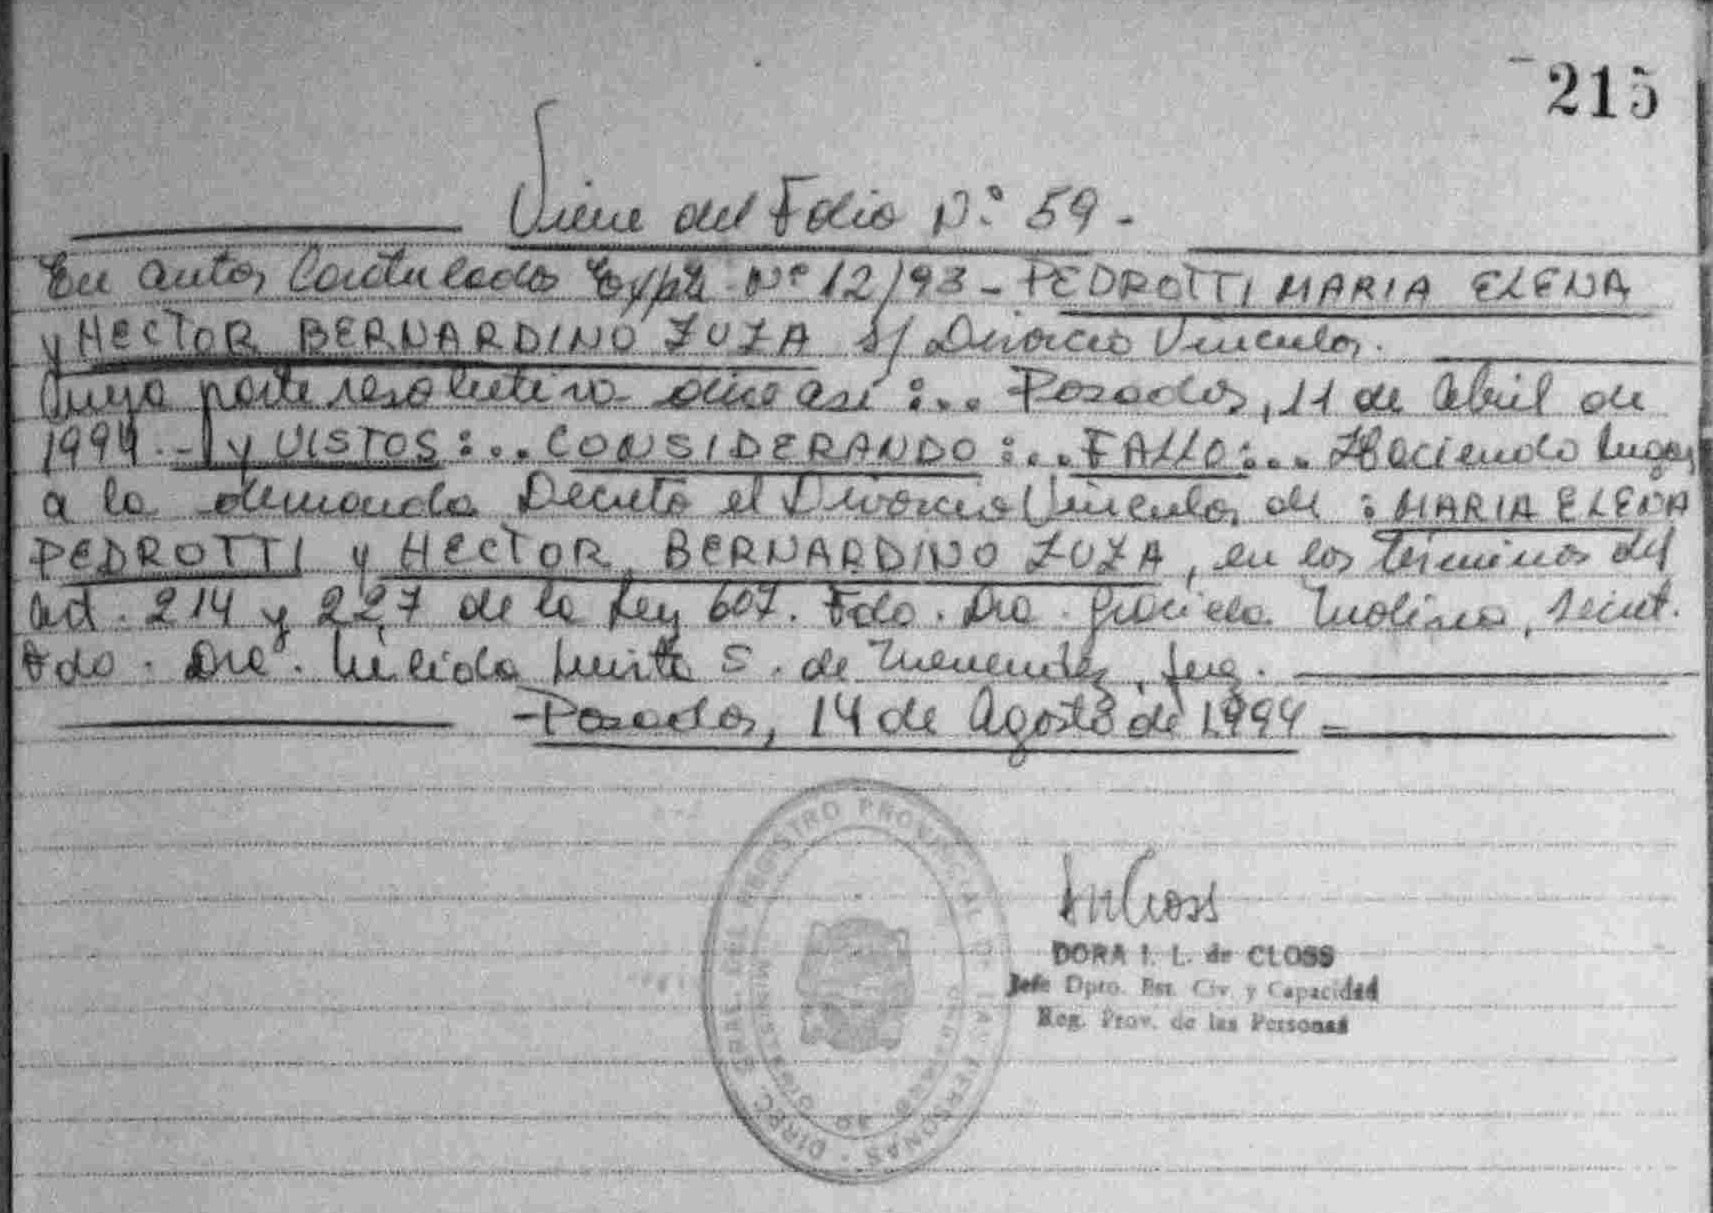 215
Viene del Folio N° 59 -
En autos Caratulados Expte. N° 12/93 - PEDROTTI MARIA ELENA
y HECTOR BERNARDINO ZUZA s/ Divorcio Vincular.
Cuya parte resolutiva dice así :... Posadas, 11 de Abril de
1994.- y VISTOS:... CONSIDERANDO:... FALLO:... Haciendo lugar
a la demanda Decreto el Divorcio Vincular de : MARIA ELENA
PEDROTTI y HECTOR BERNARDINO ZUZA, en los términos del
art. 214 y 227 de la Ley 607. Fdo. Dra. Graciela Molina, Secret.
Fdo. Dra. S. de Menendez, Juez.
-Posadas, 14 de Agosto de 1994 =
DIREC. GRAL. DEL REGISTRO PROVINCIAL DE LAS PERSONAS
MINISTERIO DE GOBIERNO
DORA I. L. de CLOSS
Jefe Dpto. Est. Civ. y Capacidad
Reg. Prov. de las Personas